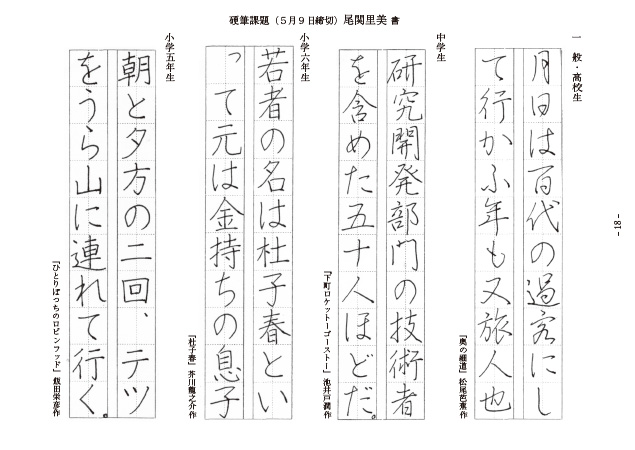 硬筆課題（５月９日締切）尾関里美 書
一般・高校生
月日は百代の過客にし
て行かふ年も又旅人也
『奥の細道』松尾芭蕉作
中学生
研究開発部門の技術者
を含めた五十人ほどだ。
『下町ロケットーゴーストー』池井戸潤作
小学六年生
若者の名は杜子春とい
って元は金持ちの息子
『杜子春』芥川龍之介作
小学五年生
朝と夕方の二回、テツ
をうら山に連れて行く。
『ひとりぼっちのロビンフッド』飯田栄彦作
- 18 -